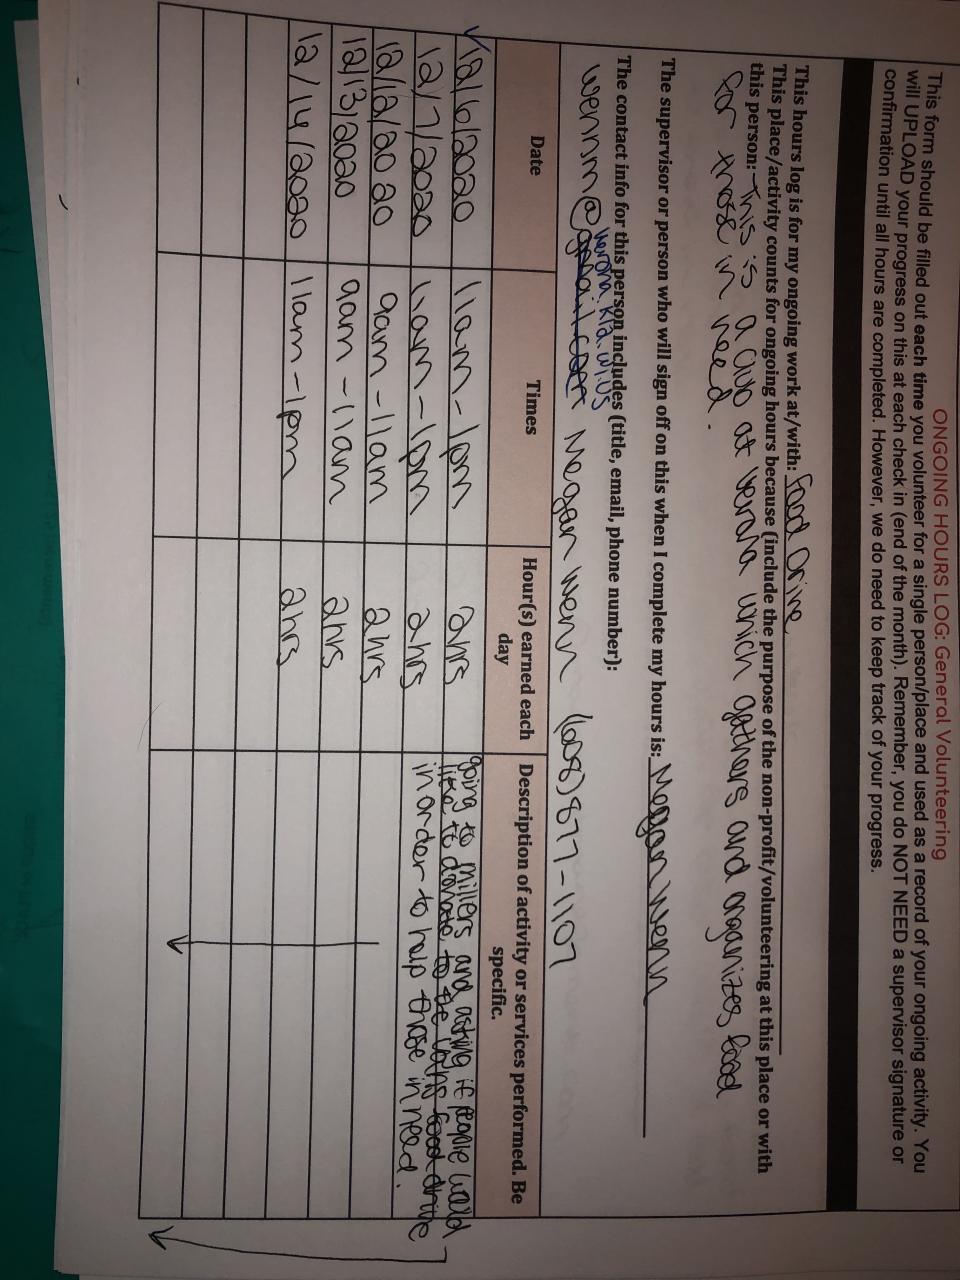 ONGOING HOURS LOG: General Volunteering
This form should be filled out each time you volunteer for a single person/place and used as a record of your ongoing activity. You
will UPLOAD your progress on this at each check in (end of the month). Remember, you do NOT NEED a supervisor signature or
confirmation until all hours are completed. However, we do need to keep track of your progress.
This hours log is for my ongoing work at/with: Food Drive
This place/activity counts for ongoing hours because (include the purpose of the non-profit/volunteering at this place or with
this person: This is a club at Verona which gathers and organizes food
for those in need.
The supervisor or person who will sign off on this when I complete my hours is: Megan Wenn
The contact info for this person includes (title, email, phone number):
verona.k12.wi.us
wennm@gmail.com Megan Wenn (608) 877-1107
Date Times Hour(s) earned each day Description of activity or services performed. Be specific.
12/6/2020 11am-1pm 2hrs going to millers and asking if people would
like to donate to the
12/7/2020 11am-1pm 2hrs in order to help those in need.
12/12/2020 9am-11am 2hrs
12/13/2020 9am-11am 2hrs
12/14/2020 11am-1pm 2hrs